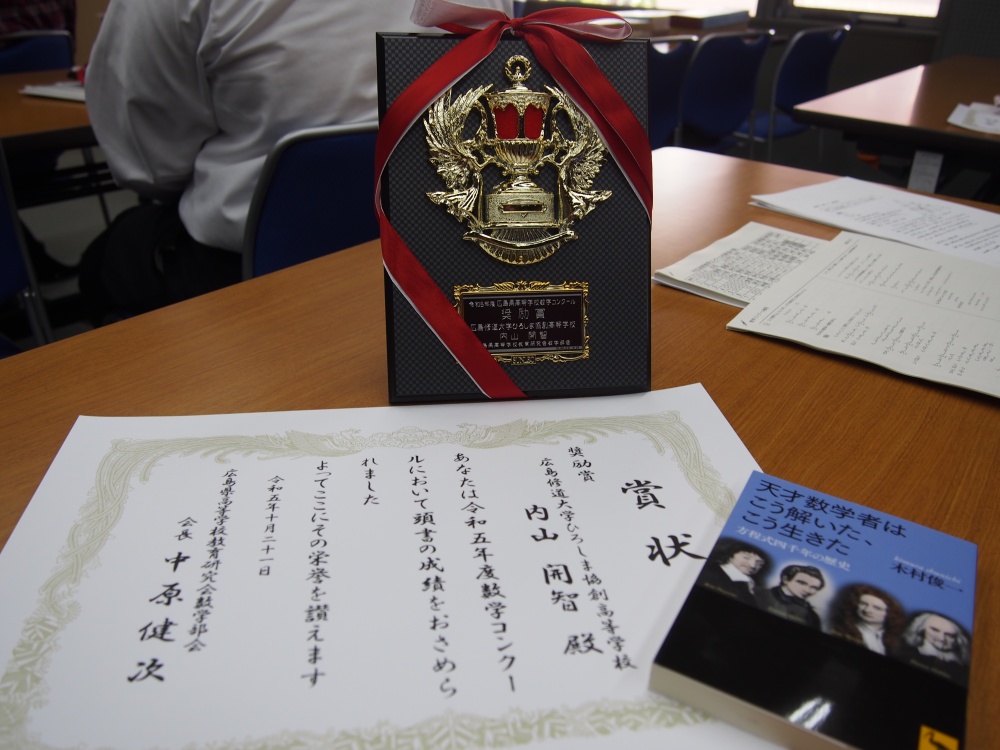 令和5年度 広島県高等学校数学コンクール
奨励賞
広島修道大学ひろしま協創高等学校
内山 開智
島県高等学校教育研究会数学部会
賞状
奨励賞
広島修道大学ひろしま協創高等学校
内山 開智 殿
あなたは令和五年度数学コンクー
ルにおいて頭書の成績をおさめら
れました
よってここにその栄誉を讃えます
令和五年十月二十一日
広島県高等学校教育研究会数学部会
会長 中原健次
天才数学者は
こう解いた、
こう生きた
方程式四千年の歴史
木村俊一